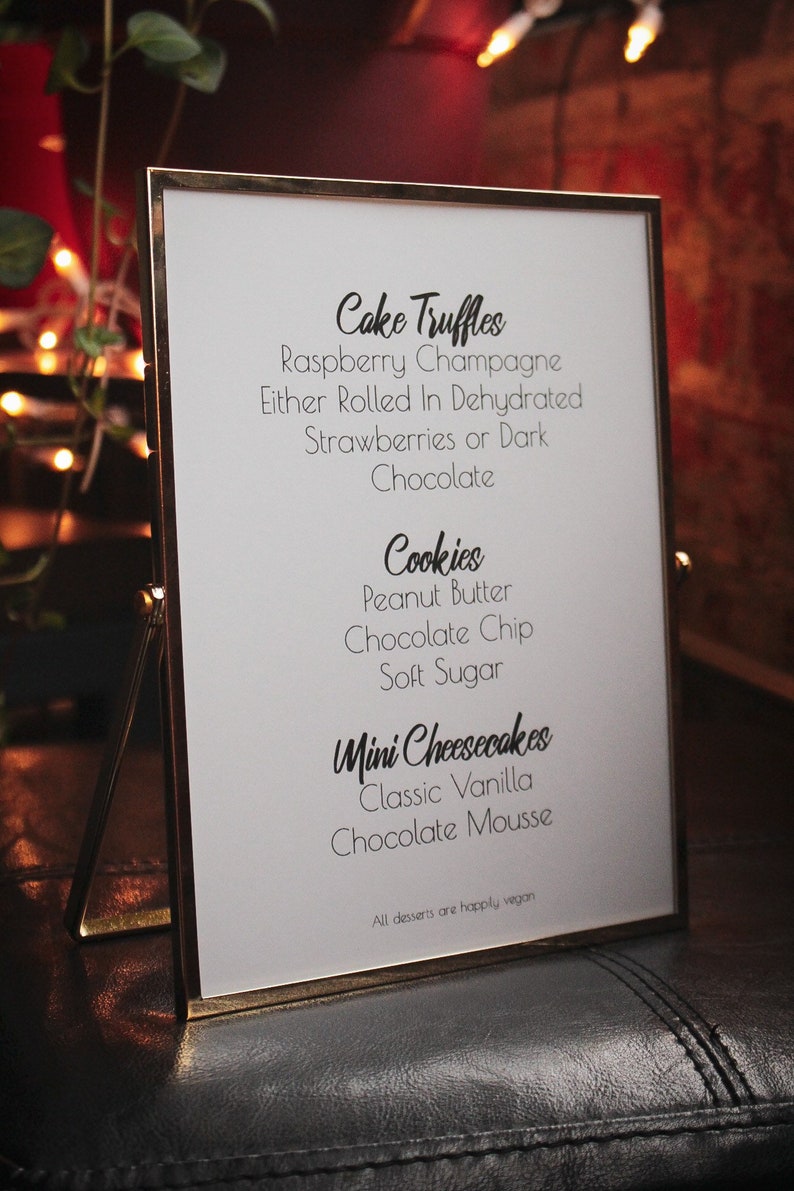 Cake Truffles
Raspberry Champagne
Either Rolled In Dehydrated
Strawberries or Dark
Chocolate
Cookies
Peanut Butter
Chocolate Chip
Soft Sugar
Mini Cheesecakes
Classic Vanilla
Chocolate Mousse
All desserts are happily vegan